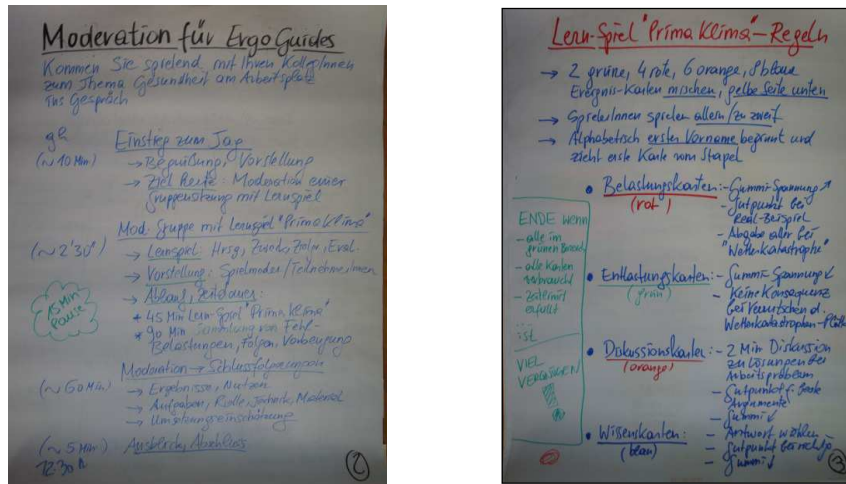 Moderation für Ergo Guides
Kommen Sie spielend mit Ihren KollegInnen
zum Thema Gesundheit am Arbeitsplatz
ins Gespräch
Einstieg zum Tag
(~10 Min)
→ Begrüßung, Vorstellung
→ Ziel heute: Moderation einer
Gruppensitzung mit Lernspiel
Mod. Gruppe mit Lernspiel "Prima Klima"
(~2'30")
→ Lernspiel: Hrsg, Zweck, Ziele, Eval.
→ Vorstellung: Spielmoder./TeilnehmerInnen
15 Min
Pause
→ Ablauf, Zeitdauer:
* 45 Min Lern-Spiel "Prima Klima"
* 90 Min Sammlung von Fehl-
Belastungen, Folgen, Vorbeugung
Moderation → Schlussfolgerungen
(~60 Min)
→ Ergebnisse, Nutzen
→ Aufgaben, Rolle, Technik, Material
→ Umsetzungseinschätzung
(~5 Min)
Ausblick, Abschluss
12 30
2
Lern-Spiel "Prima Klima" - Regeln
→ 2 grüne, 4 rote, 6 orange, 8 blaue
Ereignis-Karten mischen, gelbe Seite unten
→ SpielerInnen spielen allein/zu zweit
→ Alphabetisch erster Vorname beginnt und
zieht erste Karte vom Stapel
• Belastungskarten:
(rot)
- Gummi-Spannung ↗
- Gutpunkt bei
Real-Beispiel
- Abgabe aller bei
"Wetterkatastrophe"
• Entlastungskarten:
(grün)
- Gummi Spannung ↙
- Keine Konsequenz
bei Vermischen d.
• Diskussionskarten:
(orange)
- 2 Min Diskussion
zu Lösungen der
Arbeitsproblem
- Gutpunkt f. beste
Argumente
- Gummi ↙
• Wissenskarten:
(blau)
- Antwort wählen
- Gutpunkt bei richtig
- Gummi ↓
ENDE wenn
- alle im
grünen Bereich
- alle Karten
verbraucht
- Zeitlimit
erfüllt
... ist
VIEL
VERGNÜGEN
!
3